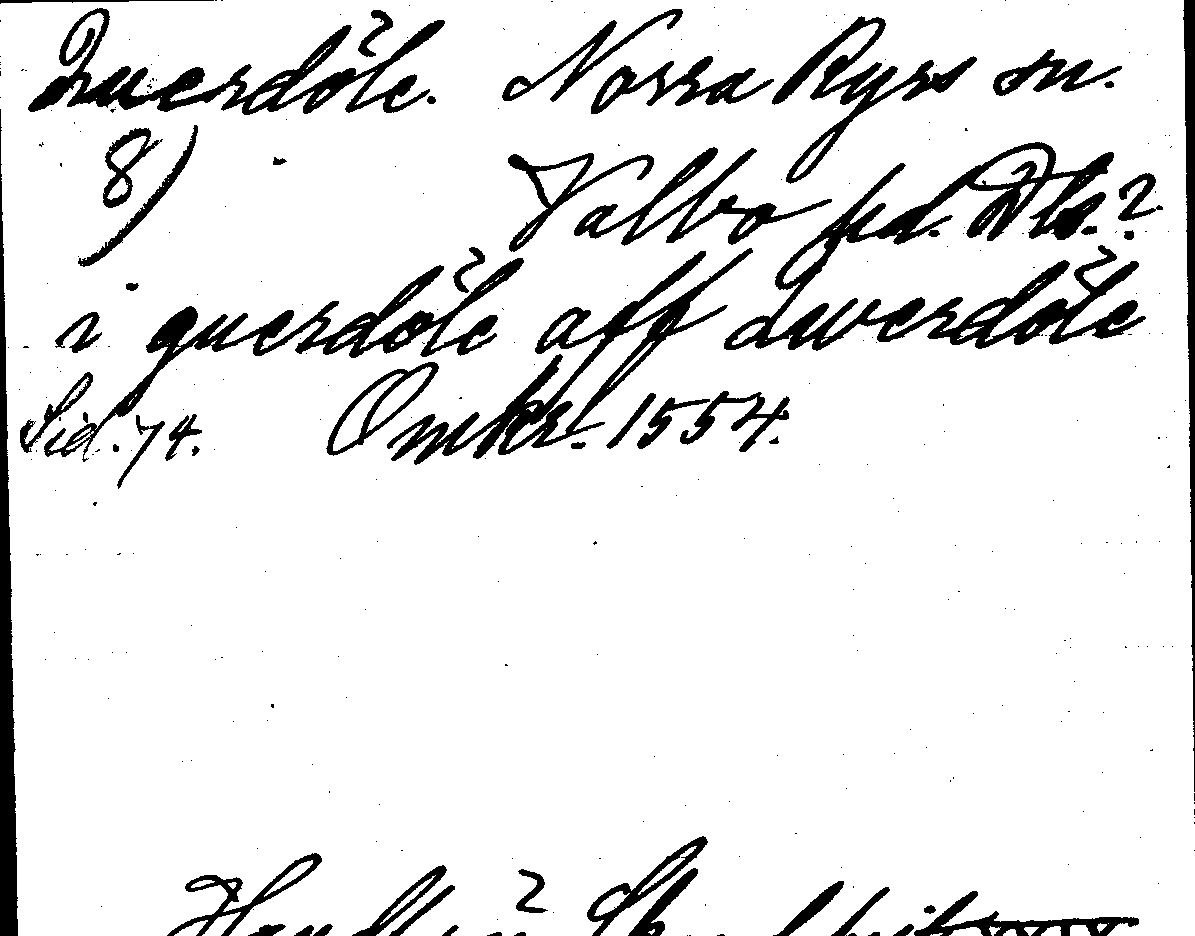 Querdöle. Norra Ryrs sn.
8)
Valbo hd. Dls.?
i querdöle aff Querdöle
Sid. 74. Omkr. 1554.
Handl.